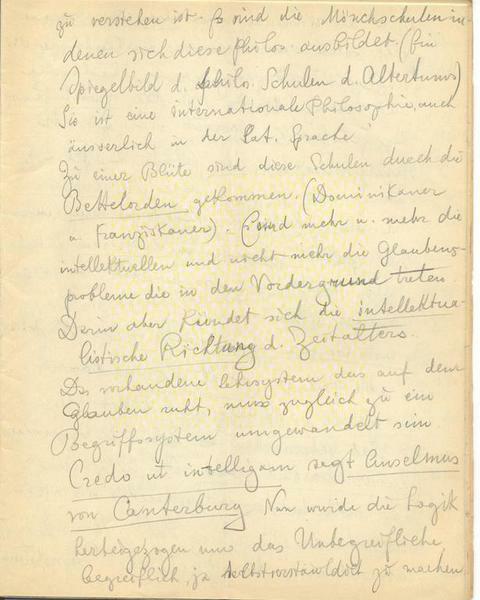 zu verstehen ist. Es sind die Mönchschulen in
denen sich diese Philos. ausbildet. (Ein
Spiegelbild d. philo. Schulen d. Altertums)
Sie ist eine internationale Philosophie, auch
äusserlich in der Lat. Sprache
Zu einer Blüte sind diese Schulen durch die
Bettelorden gekommen. (Dominikaner
u. Franziskaner). Es sind mehr u. mehr die
intellektuellen und nicht mehr die Glaubens-
probleme die in den Vordergrund treten
Darin aber kündet sich die intellektua-
listische Richtung d. Zeitalters.
Das vorhandene Lehrsystem das auf dem
Glauben ruht, muss zugleich zu ein
Begriffssystem umgewandelt sein
Credo ut intelligam sagt Anselmus
von Canterburg Nun wurde die Logik
herbeigezogen um das Unbegreifliche
begreiflich, ja selbstverständlich zu machen